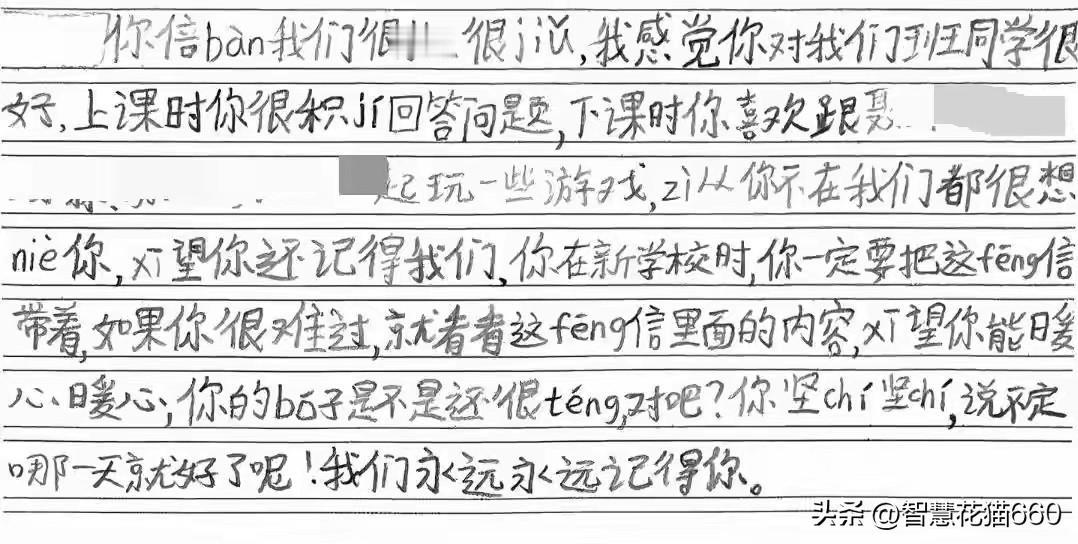 你倍bàn我们很 很jiǔ,我感觉你对我们班同学很
好,上课时你很积jí回答问题,下课时你喜欢跟
起玩一些游戏,zì从你不在我们都很想
niè你,xī望你还记得我们,你在新学校时,你一定要把这fēng信
带着,如果你很难过,就看看这fēng信里面的内容,xī望你能暖
心暖心,你的bó子是不是还很téng,对吧?你坚chí坚chí,说不定
哪一天就好了呢!我们永远永远记得你。
头条 @智慧花猫660